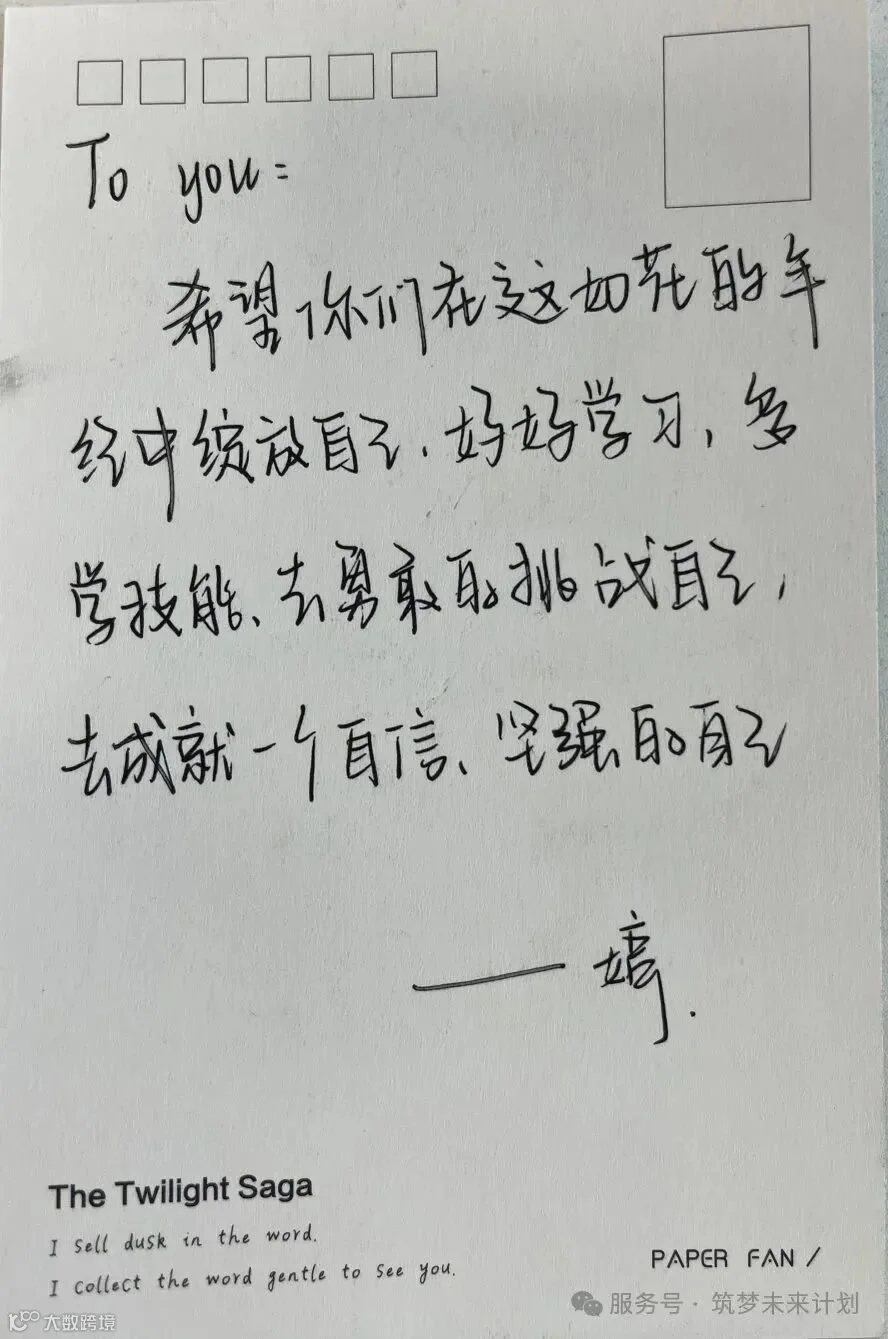 To you:
希望你们在这如花的年
经中绽放自己、好好学习，多
学技能、去勇敢的挑战自己，
去成就一个自信、坚强的自己
—— 婷.
The Twilight Saga
I sell dusk in the word.
I collect the word gentle to see you.
PAPER FAN /
服务号 · 筑梦未来计划
大数跨境